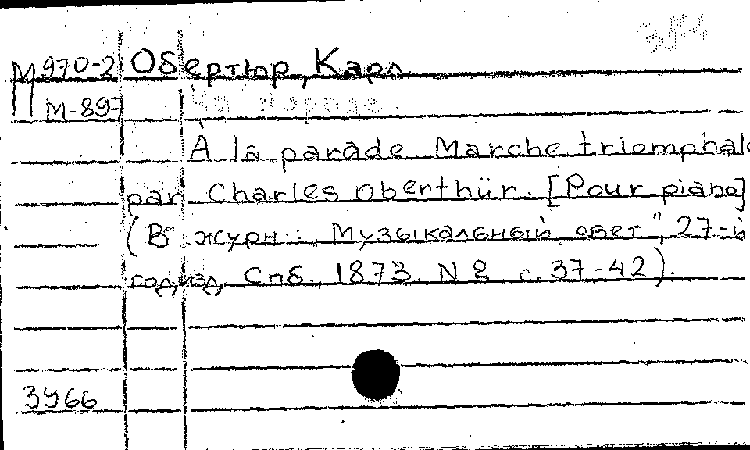 М 970-2 Обертюр, Карл
М-897 На параде.
À la parade Marche triomphale
par Charles Oberthür. [Pour piano]
(В журн.: Музыкальный свет", 27-й
год изд, Спб, 1873 N 8 с. 37-42).
3966